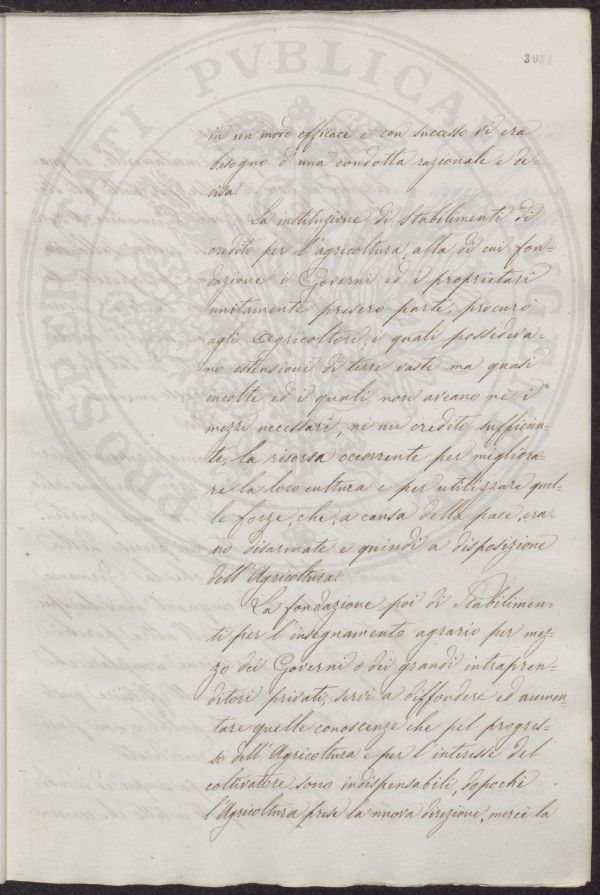 in un modo efficace e con successo vi era
bisogno d'una condotta razionale e de-
cisa.
La instituzione di Stabilimenti di
credito per l'agricoltura, alla di cui fon-
dazione i Governi ed i proprietari
unitamente presero parte, procurò
agli Agricoltori, i quali possedeva-
no estensioni di terre vaste ma quasi
incolte ed i quali non aveano nè i
mezzi necessari, nè un credito sufficien-
te, la risorsa occorrente per migliora-
re la loro cultura e per utilizzare quel-
le forze, che, a causa della pace, era-
no disarmate e quindi a disposizione
dell'Agricoltura.
La fondazione poi di Stabilimen-
ti per l'insegnamento agrario per mez-
zo dei Governi o dei grandi intrapren-
ditori privati, servì a diffondere ed aumen-
tare quelle conoscenze che pel progres-
so dell'Agricoltura e per l'interesse del
coltivatore sono indispensabili, dopochè
l'Agricoltura prese la nuova direzione, mercè la
PROSPERITATI PVBLICAE